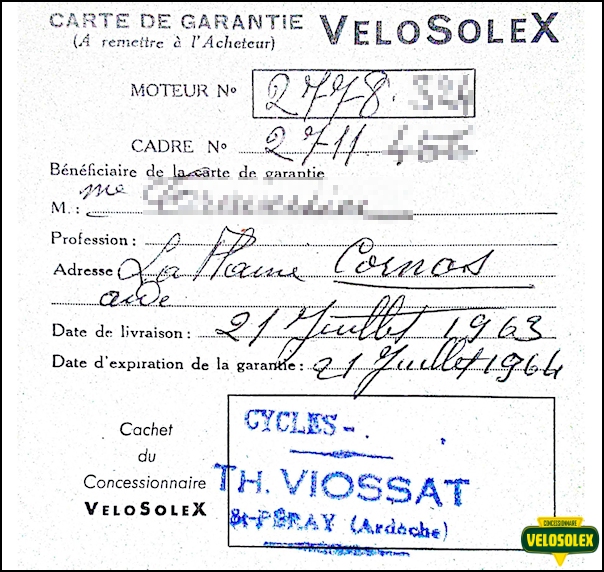 CARTE DE GARANTIE VELOSOLEX
(A remettre à l'Acheteur)
MOTEUR No 2778.
CADRE No 2711
Bénéficiaire de la carte de garantie
M.: me
Profession:
Adresse La Plaine Cornas
Date de livraison: 21 Juillet 1963
Date d'expiration de la garantie: 21 Juillet 1964
Cachet
du
Concessionnaire
VELOSOLEX
CYCLES-
TH. VIOSSAT
St-PERAY (Ardèche)
CONCESSIONNAIRE
VELOSOLEX